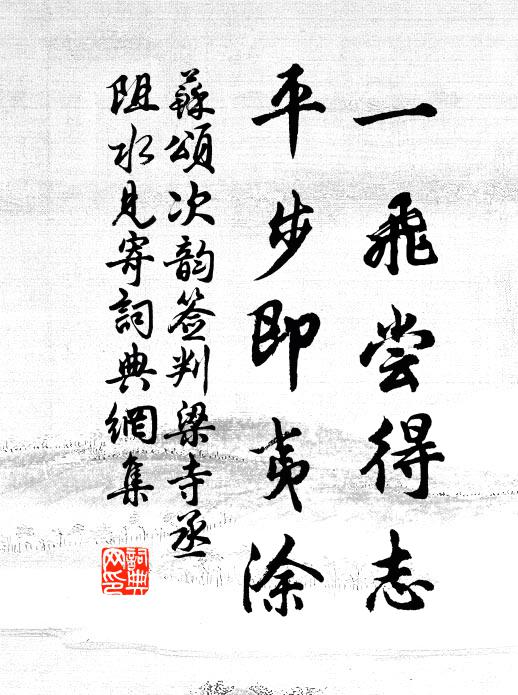 一飛嘗得志
平步即夷涂
蘇頌次韵簽判梁寺丞
阻水見寄詞典網集
詞典
网印